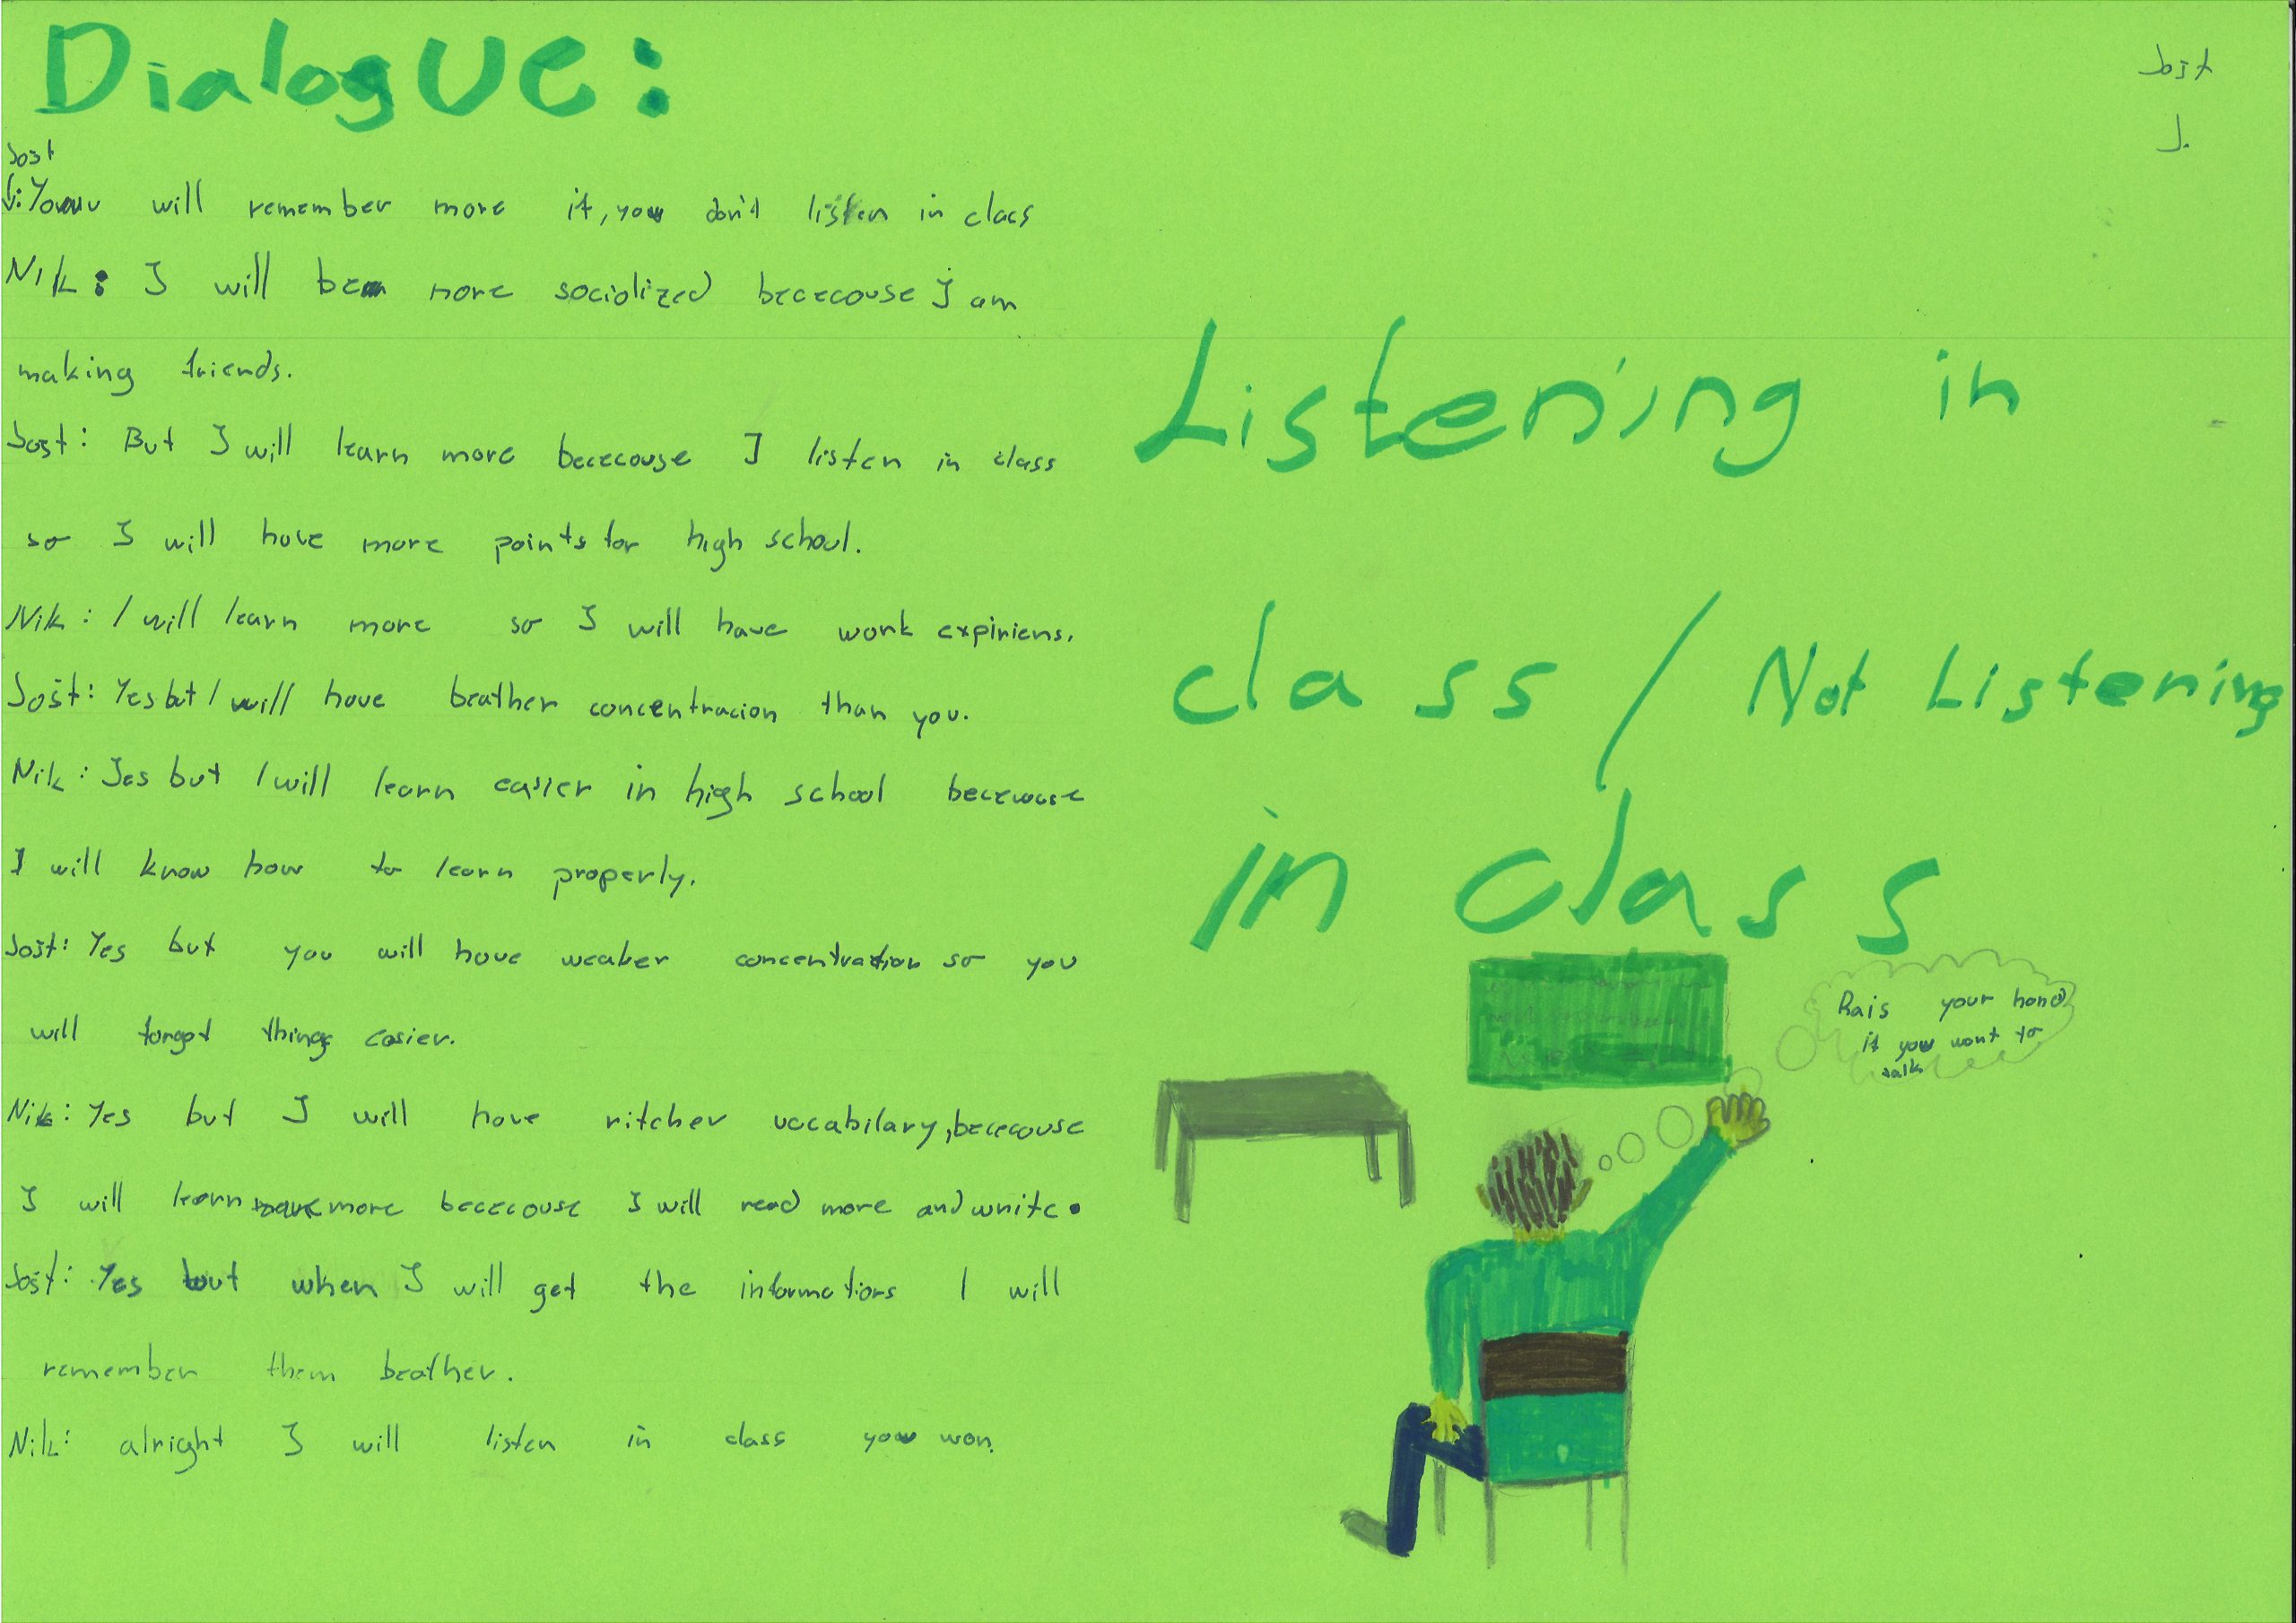 Dialogue:
Jošt
J.
Jošt
J: You will remember more if, you don't listen in class
Nik: I will be more sociolized bececouse I am
making friends.
Jošt: But I will learn more bececouse I listen in class
so I will have more points for high school.
Nik: I will learn more so I will have work expiriens.
Jošt: Yes but I will have beather concentracion than you.
Nik: Yes but I will learn easier in high school bececouse
I will know how to learn properly.
Jošt: Yes but you will have weaker concentration so you
will forgot things easier.
Nik: Yes but I will have ritcher vocabilary, bececouse
I will learn more bececouse I will read more and write.
Jošt: Yes but when I will get the informations I will
remember them beather.
Nik: alright I will listen in class you won.
Listening in
class / Not Listening
in class
Rais your hand
if you want to
talk